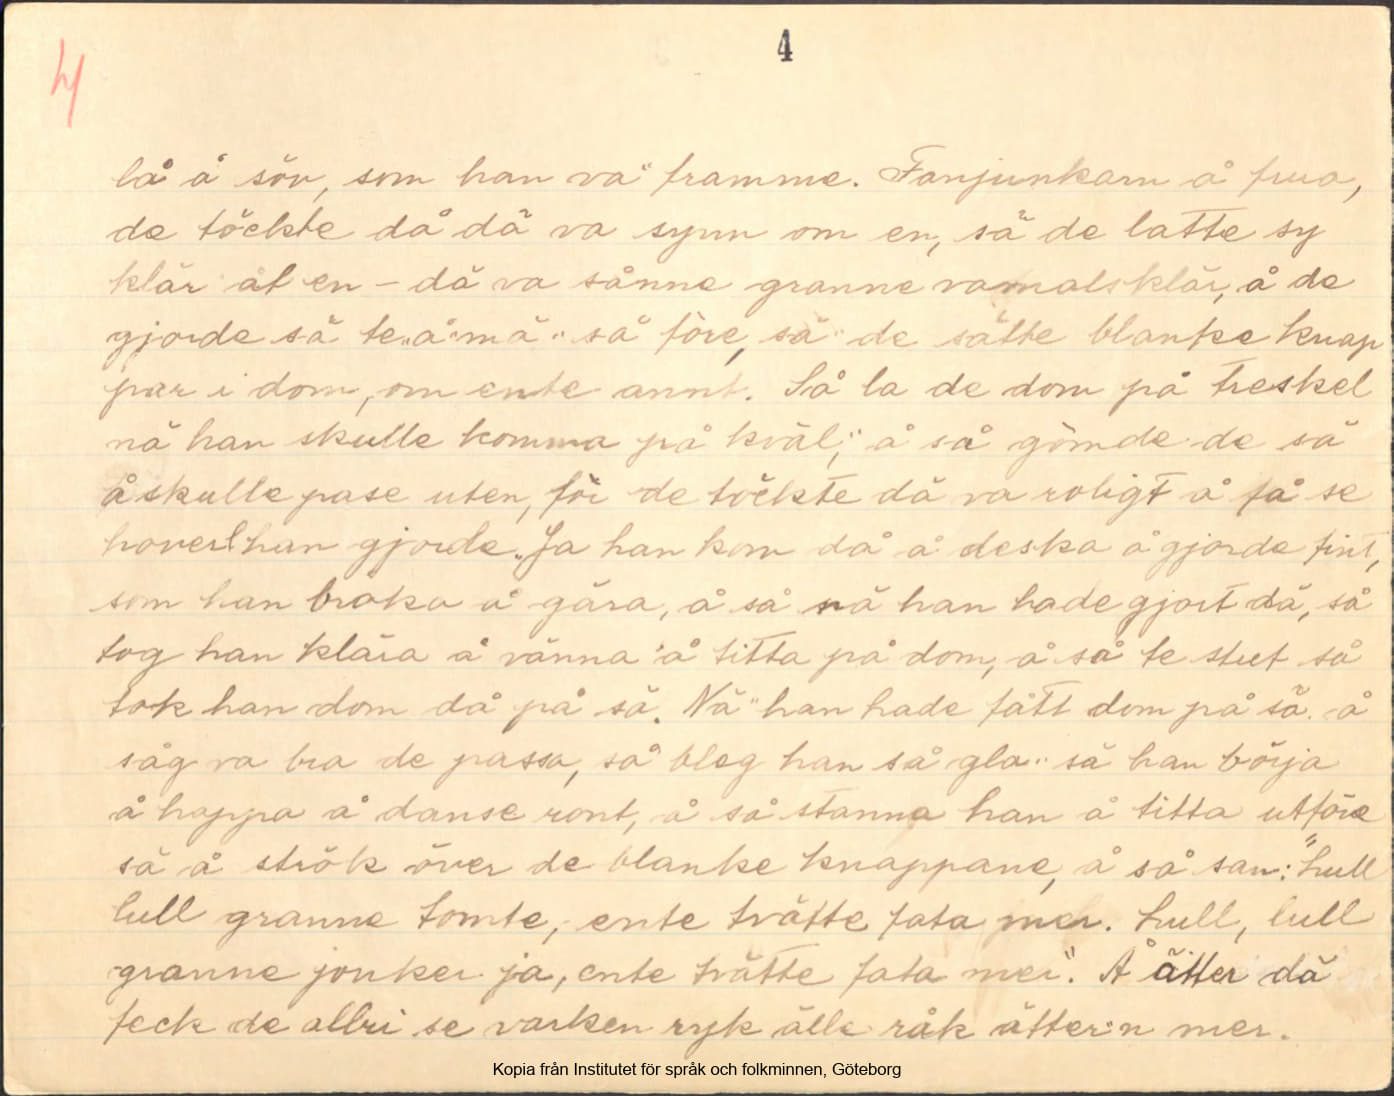 4
4
lå å söv, som han va framme. Fanjunkarn å frua,
de töckte då dä va synn om en, sä de latte sy
klär åt en – dä va sånne granne vamalsklär, å de
gjorde sä te å mä så före, sä de sätte blanke knap
par i dom, om ente annt. Så la de dom på treskel
nä han skulle komma på kväl, å så gömde de sä
å skulle pase uten, för de töckte dä va roligt å få se
hovert han gjorde. Ja han kom då å deska å gjorde fint,
som han broka å gära, å så nä han hade gjort dä, så
tog han klära å vänna å titta på dom, å så te slut så
tok han dom då på sä. Nä han hade fått dom på sä å
såg va bra de passa, så bleg han så gla sä han börja
å hoppa å danse ront, å så stanna han å titta utföre
sä å strök över de blanke knappane, å så san: "Lull
lull granne tomte, ente tvätte fata mer. Lull, lull
granne jonker ja, ente tvätte fata mer". Å ätter dä
feck de allri se varken ryk älle råk ätter:n mer.
Kopia från Institutet för språk och folkminnen, Göteborg